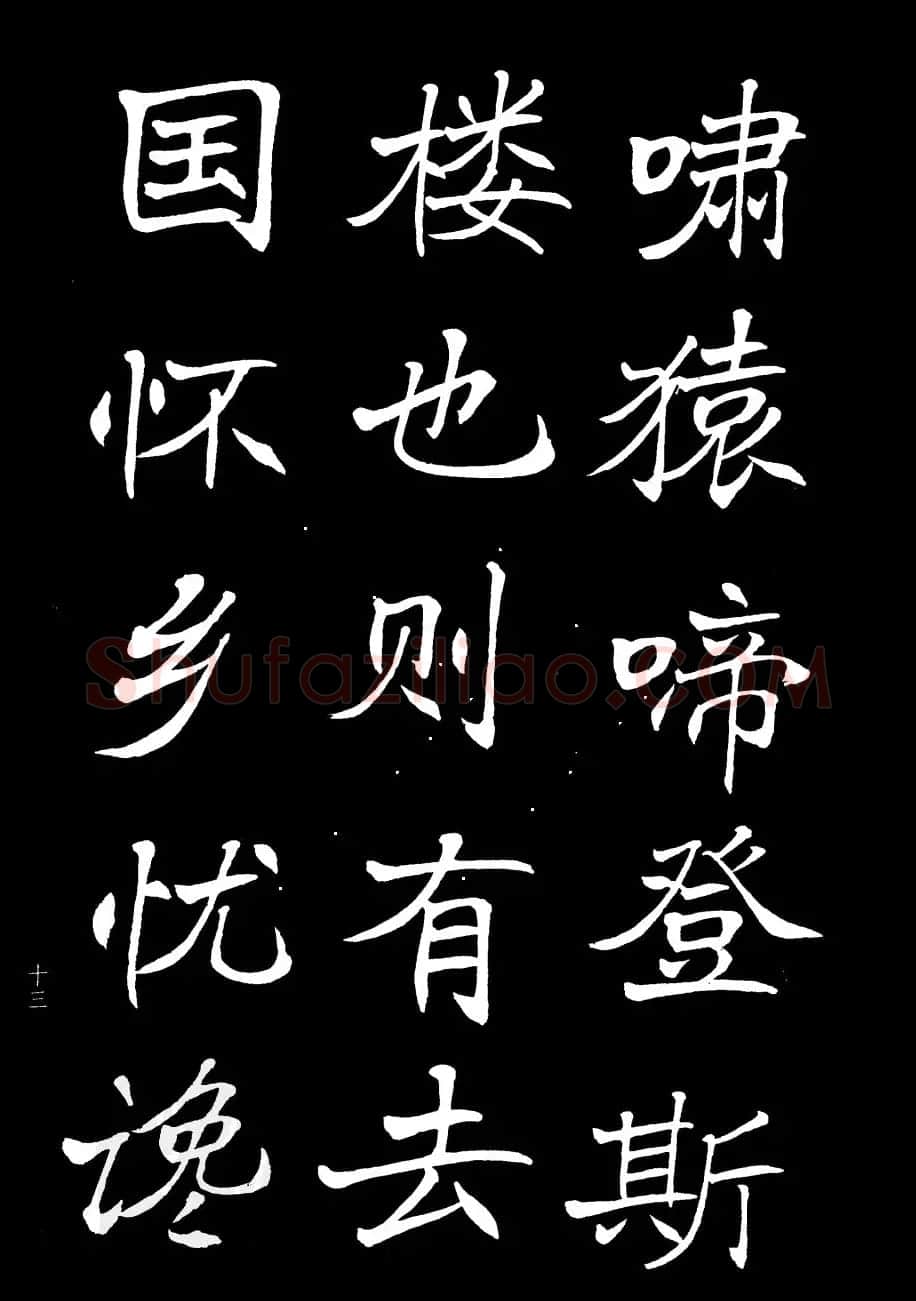 啸猿啼登斯
楼也则有去
国怀乡忧谗
十三
Shufaziliao.COM